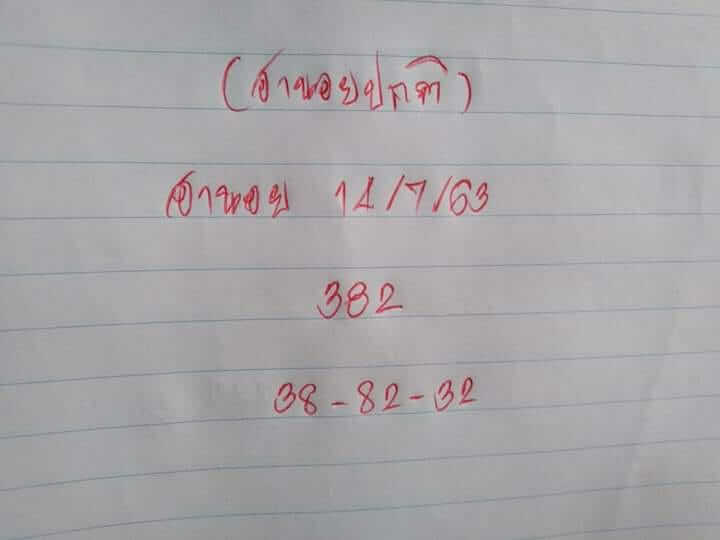 (ฮานอยปกติ)
ฮานอย 14/7/63
382
38-82-32